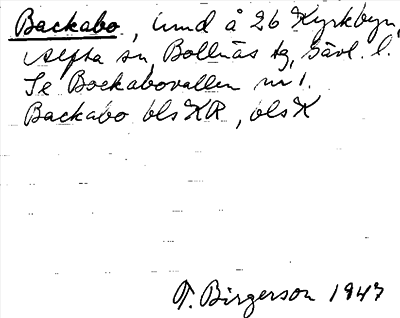 Backabo, und å 26 Kyrkbyn,
Alfta sn, Bollnäs tg, Gävl. l.
Se Backabovallen nr 1.
Backabo bls KR, bls K
T. Birgerson 1947